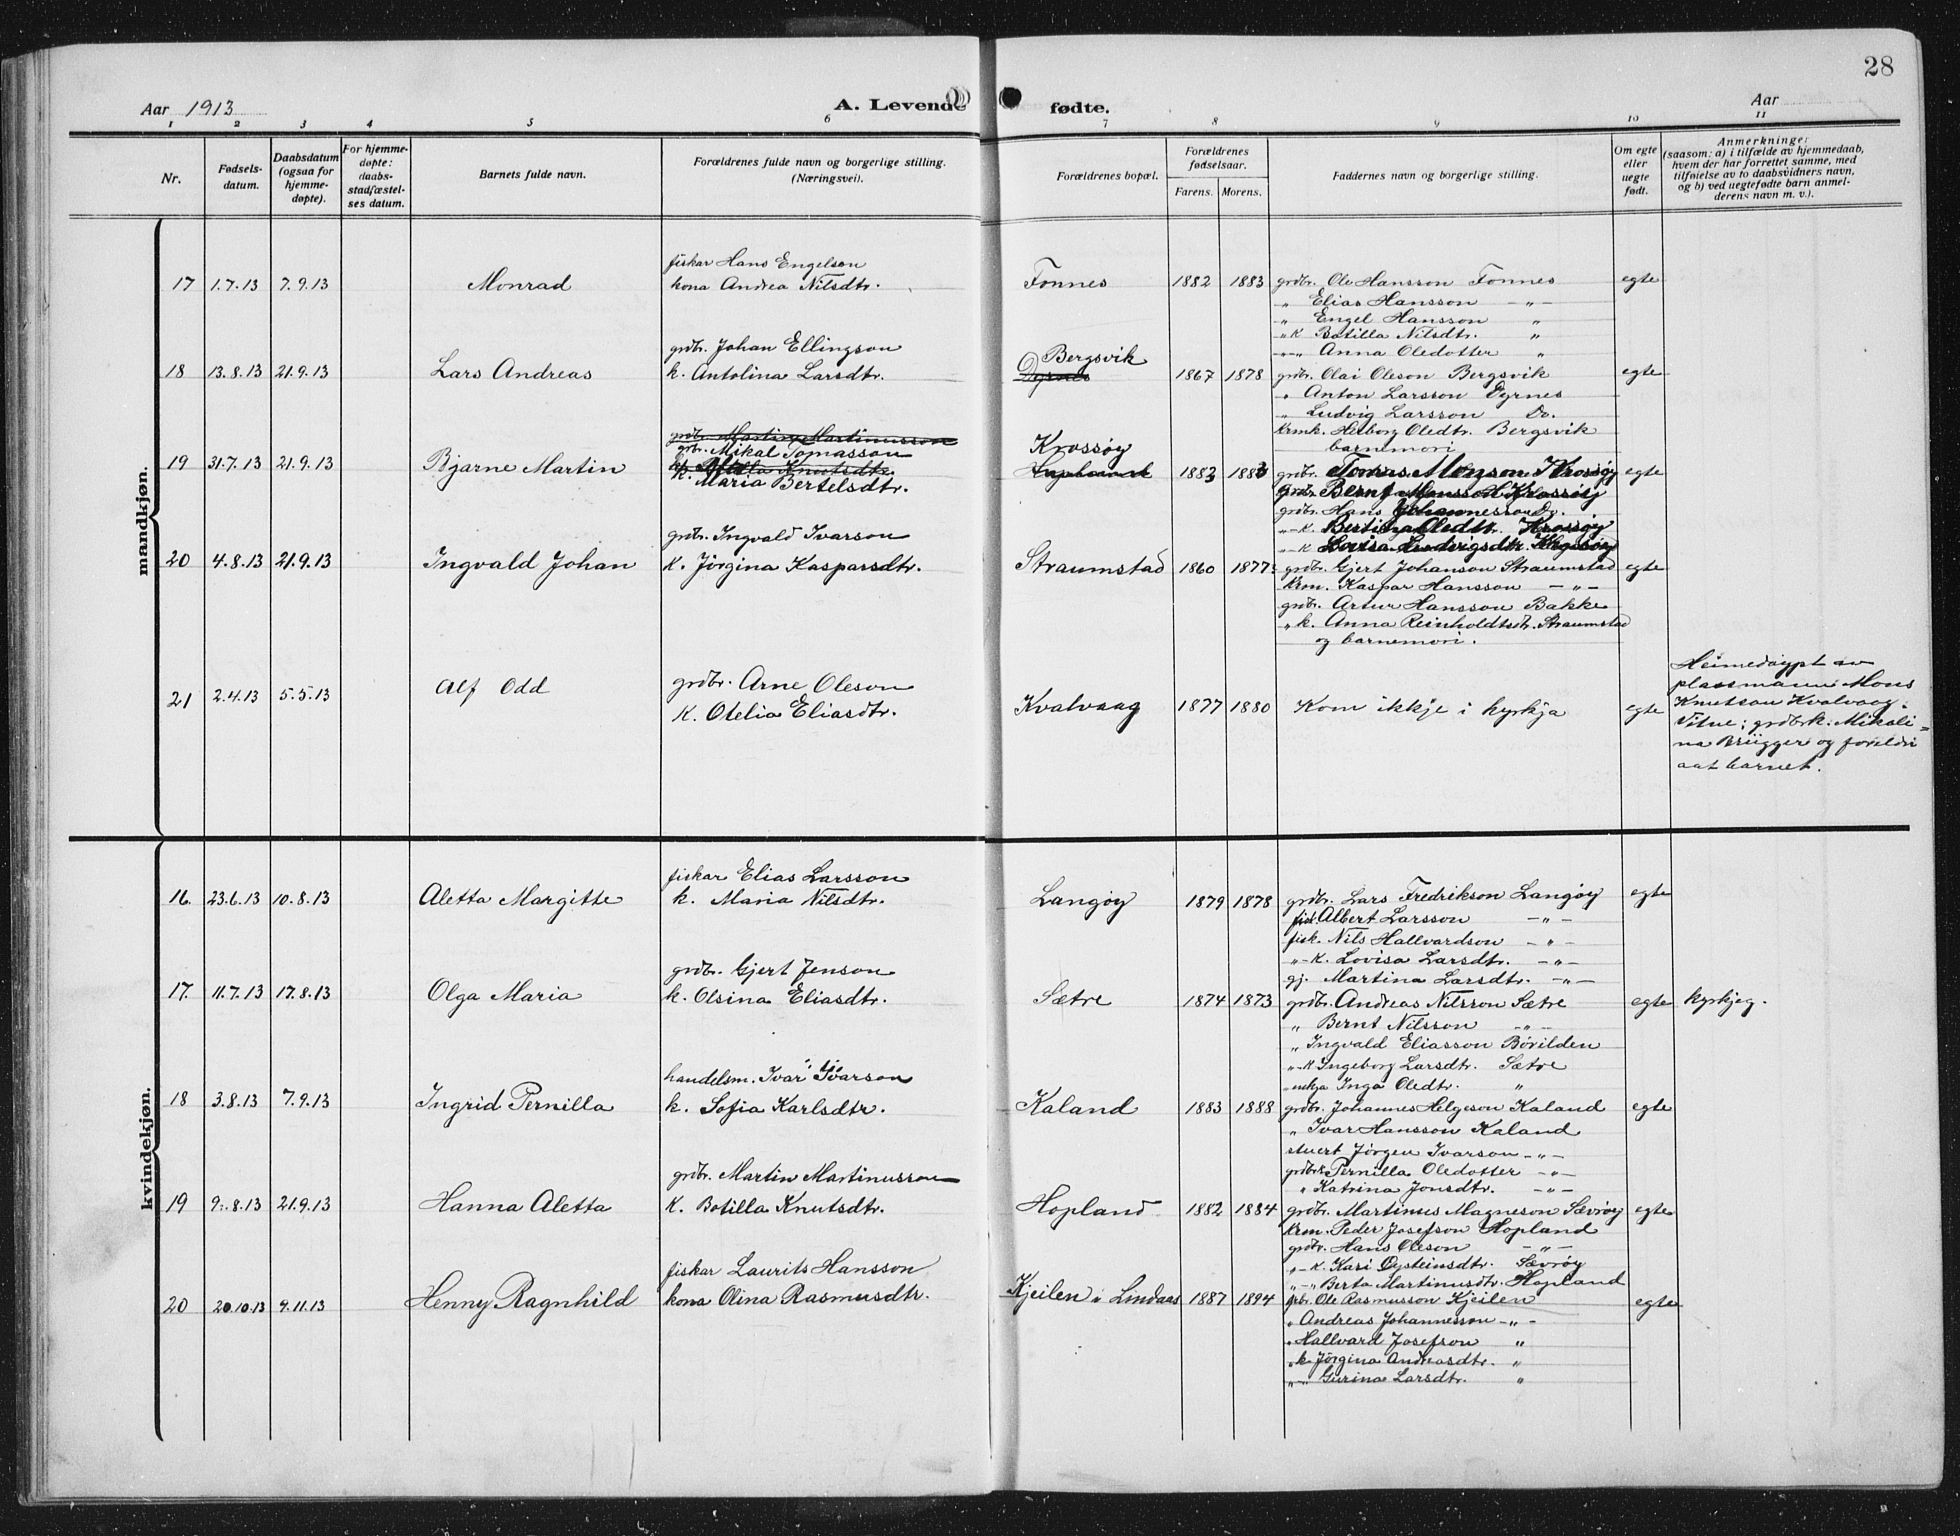 28
Aar 1913
A. Levende fødte.
Aar
1 2 3 4 5 6 7 8 9 10 11
Nr.
Fødsels-
datum.
Daabsdatum
(ogsaa for
hjemme-
døpte).
For hjemme-
døpte:
daabs-
stadfæstel-
ses datum.
Barnets fulde navn.
Forældrenes fulde navn og borgerlige stilling.
(Næringsvei).
Forældrenes bopæl.
Forældrenes
fødselsaar.
Farens. Morens.
Faddernes navn og borgerlige stilling.
Om egte
eller
uegte
født.
Anmerkninger
(saasom: a) i tilfælde av hjemmedaab,
hvem der har forrettet samme, med
tilføielse av to daabsvidners navn,
og b) ved uegtefødte barn anmel-
derens navn m. v.).
mandkjøn.
fiskar Hans Engelson
17 1.7.13 7.9.13 Monrad kona Andrea Nilsdtr. Fonnes 1882 1883 grdbr. Ole Hansson Fonnes egte
" Elias Hansson - " -
" Engel Hansson "
" k Botilla Nilsdtr. "
" - " Anna Oledotter "
grdbr. Johan Ellingson
Bergsvik
18 13.8.13 21.9.13 Lars Andreas k. Antolina Larsdtr. Dyrnes 1867 1878 grdbr. Olai Oleson Bergsvik egte
" Anton Larsson Dyrnes
" Ludvig Larsson Do.
krmk. Heiborg Oledtr. Bergsvik
barnemori
grdbr. Martin Martinusson
grbr. Mikal Tomasson
k. Botilla Knutsdtr.
Krossøy
19 31.7.13 21.9.13 Bjarne Martin k. Maria Bertelsdtr. Hopland 1883 1883 grdbr. Tomas Monson Krossøy egte
grdbr. Bernt Monsson Krossøy
grdbr. Hans Johannesson Do.
" - k. Bertina Oledtr. Krossøy
" - k Lovisa Ludvigsdtr.
grdbr. Ingvald Ivarson
20 4.8.13 21.9.13 Ingvald Johan K. Jörgina Kasparsdtr. Straumstad 1860 1877 grdbr. Gjert Johanson Straumstad egte
krm. Kaspar Hansson - " -
grdbr. Artur Hansson Bakke
" k. Anna Reinholdtsdtr. Straumstad
og barnemori.
grdbr. Arne Oleson
21 2.4.13 5.5.13 Alf Odd K. Otelia Eliasdtr. Kvalvaag 1877 1880 Kom ikkje i kyrkja egte
Heimedøypt av
plassmann Mons
Knutson Kvalvaag.
Vitne: grdbrk. Mikali=
na Brügger og foreldri
aat barnet.
kvindekjøn.
fiskar Elias Larsson
16. 23.6.13 10.8.13 Aletta Margitte k. Maria Nilsdtr. Langøy 1879 1878 grdbr. Lars Fredrikson Langøy egte
fisk Albert Larsson - " -
fisk. Nils Hallvardson - " -
" - k. Lovisa Larsdtr. - " -
gj. Martina Larsdtr. - " -
grdbr. Gjert Jenson
17. 11.7.13 17.8.13 Olga Maria k. Olsina Eliasdtr. Sætre 1874 1873 grdbr. Andreas Nilsson Sætre egte kyrkjeg.
" Bernt Nilsson - " -
" Ingvald Eliasson Bövilden
" - k Ingeborg Larsdtr. Sætre
enkja Inga Oledtr. "
handelsm. Ivar Ivarson
18 3.8.13 7.9.13 Ingrid Pernilla k. Sofia Karlsdtr. Kaland 1883 1888 grdbr. Johannes Helgeson Kaland egte
" Ivar Hansson Kaland
stuert Jörgen Ivarson - " -
grdbrk Pernilla Oledotter - " -
" Katrina Jonsdtr. - " -
grdbr. Martin Martinusson
19 9.8.13 21.9.13 Hanna Aletta K. Botilla Knutsdtr. Hopland 1882 1884 grdbr. Martinus Magneson Sævrøy egte
krm. Peder Josefson Hopland
grdbr. Hans Oleson - " -
" - k. Kari Øysteinsdtr. Sævrøy
" - " Berta Martinusdtr. Hopland
fiskar Laurits Hansson
20 20.10.13 9.11.13 Henny Ragnhild kona Olina Rasmusdtr. Kjeilen i Lindaas 1887 1894 grbr. Ole Rasmusson Kjeilen egte
" Andreas Johannesson - " -
" Hallvard Josefson "
" k. Jörgina Andreasdtr. "
" - Gurina Larsdtr. "